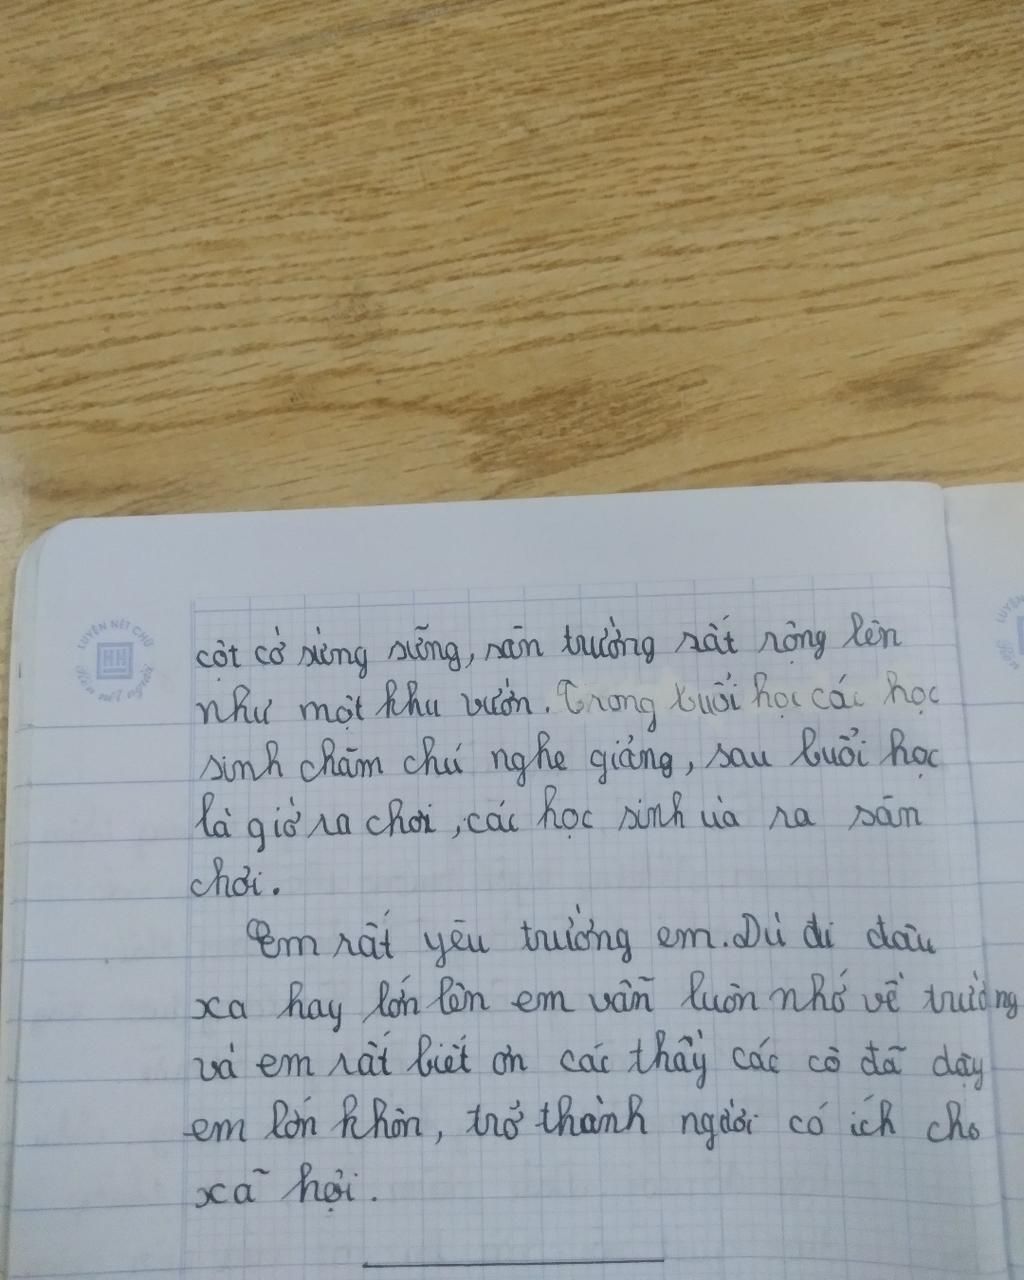 LUYỆN NÉT CHỮ
HH
Rèn nết người
cột cờ sừng sững, sân trường rất rộng lên
như một khu vườn. Trong buổi học các học
sinh chăm chú nghe giảng, sau buổi học
là giờ ra chơi, các học sinh ùa ra sân
chơi.
Em rất yêu trường em. Dù đi đâu
xa hay lớn lên em vẫn luôn nhớ về trường
và em rất biết ơn các thầy các cô đã dạy
em lớn khôn, trở thành người có ích cho
xã hội.